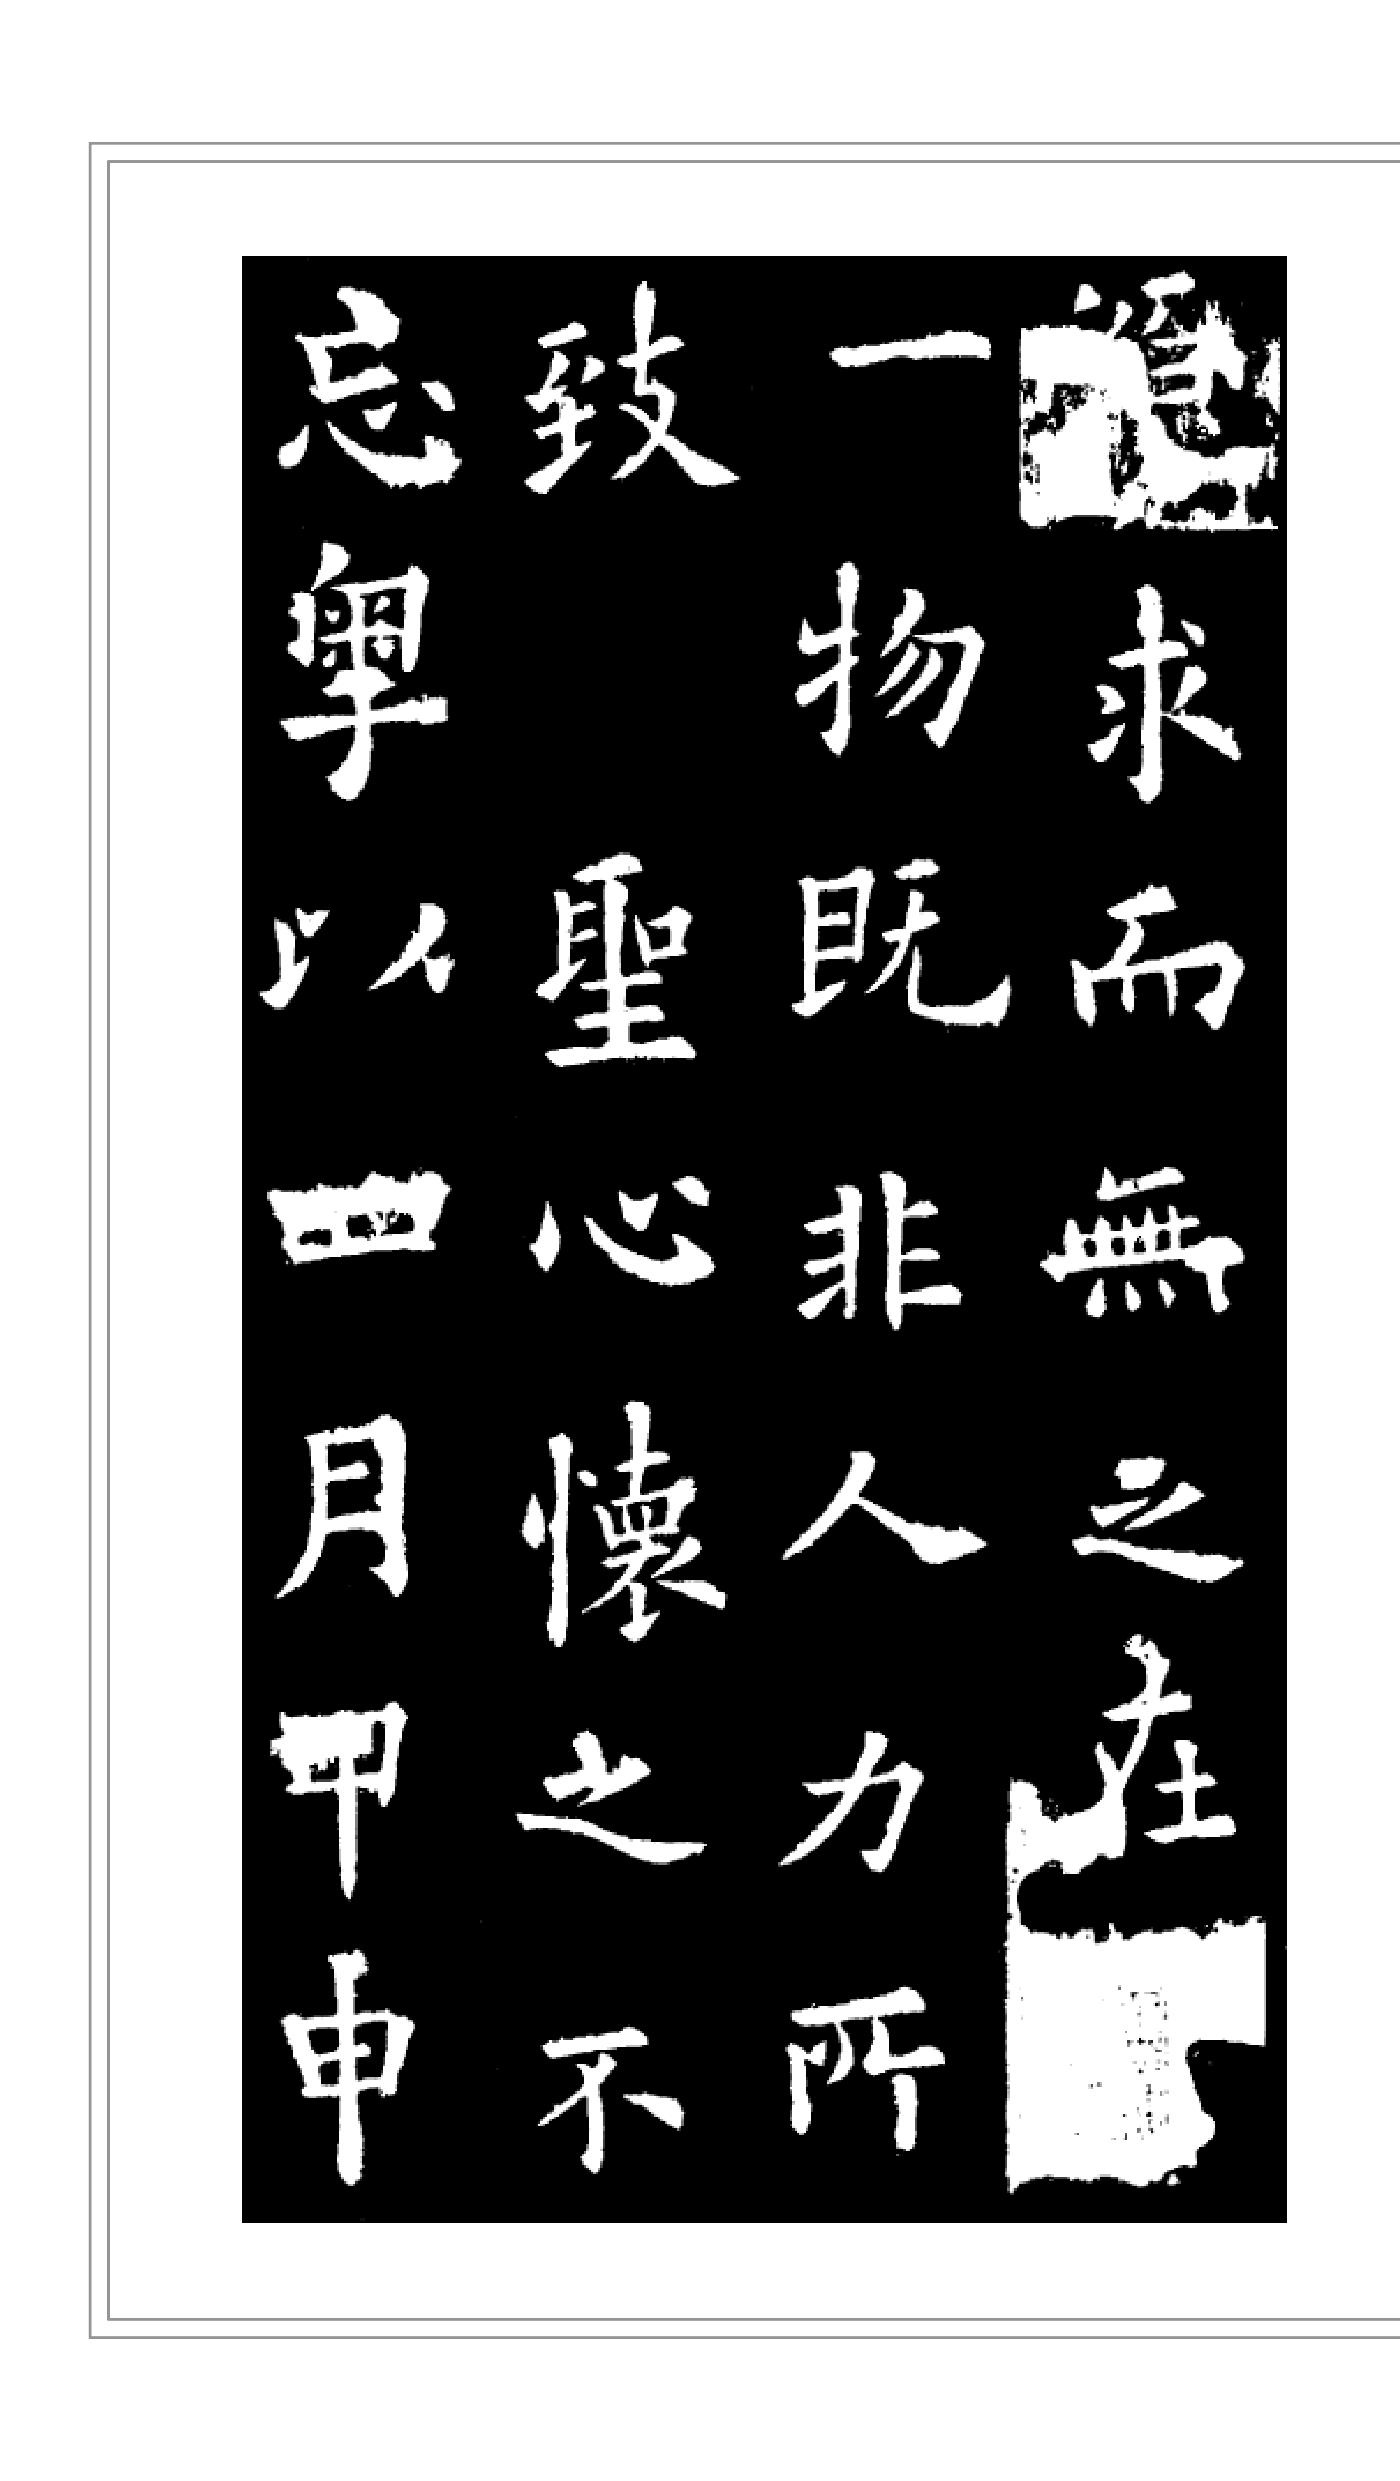 求而無之在
一物既非人力所
致聖心懷之不
忘粵以四月甲申